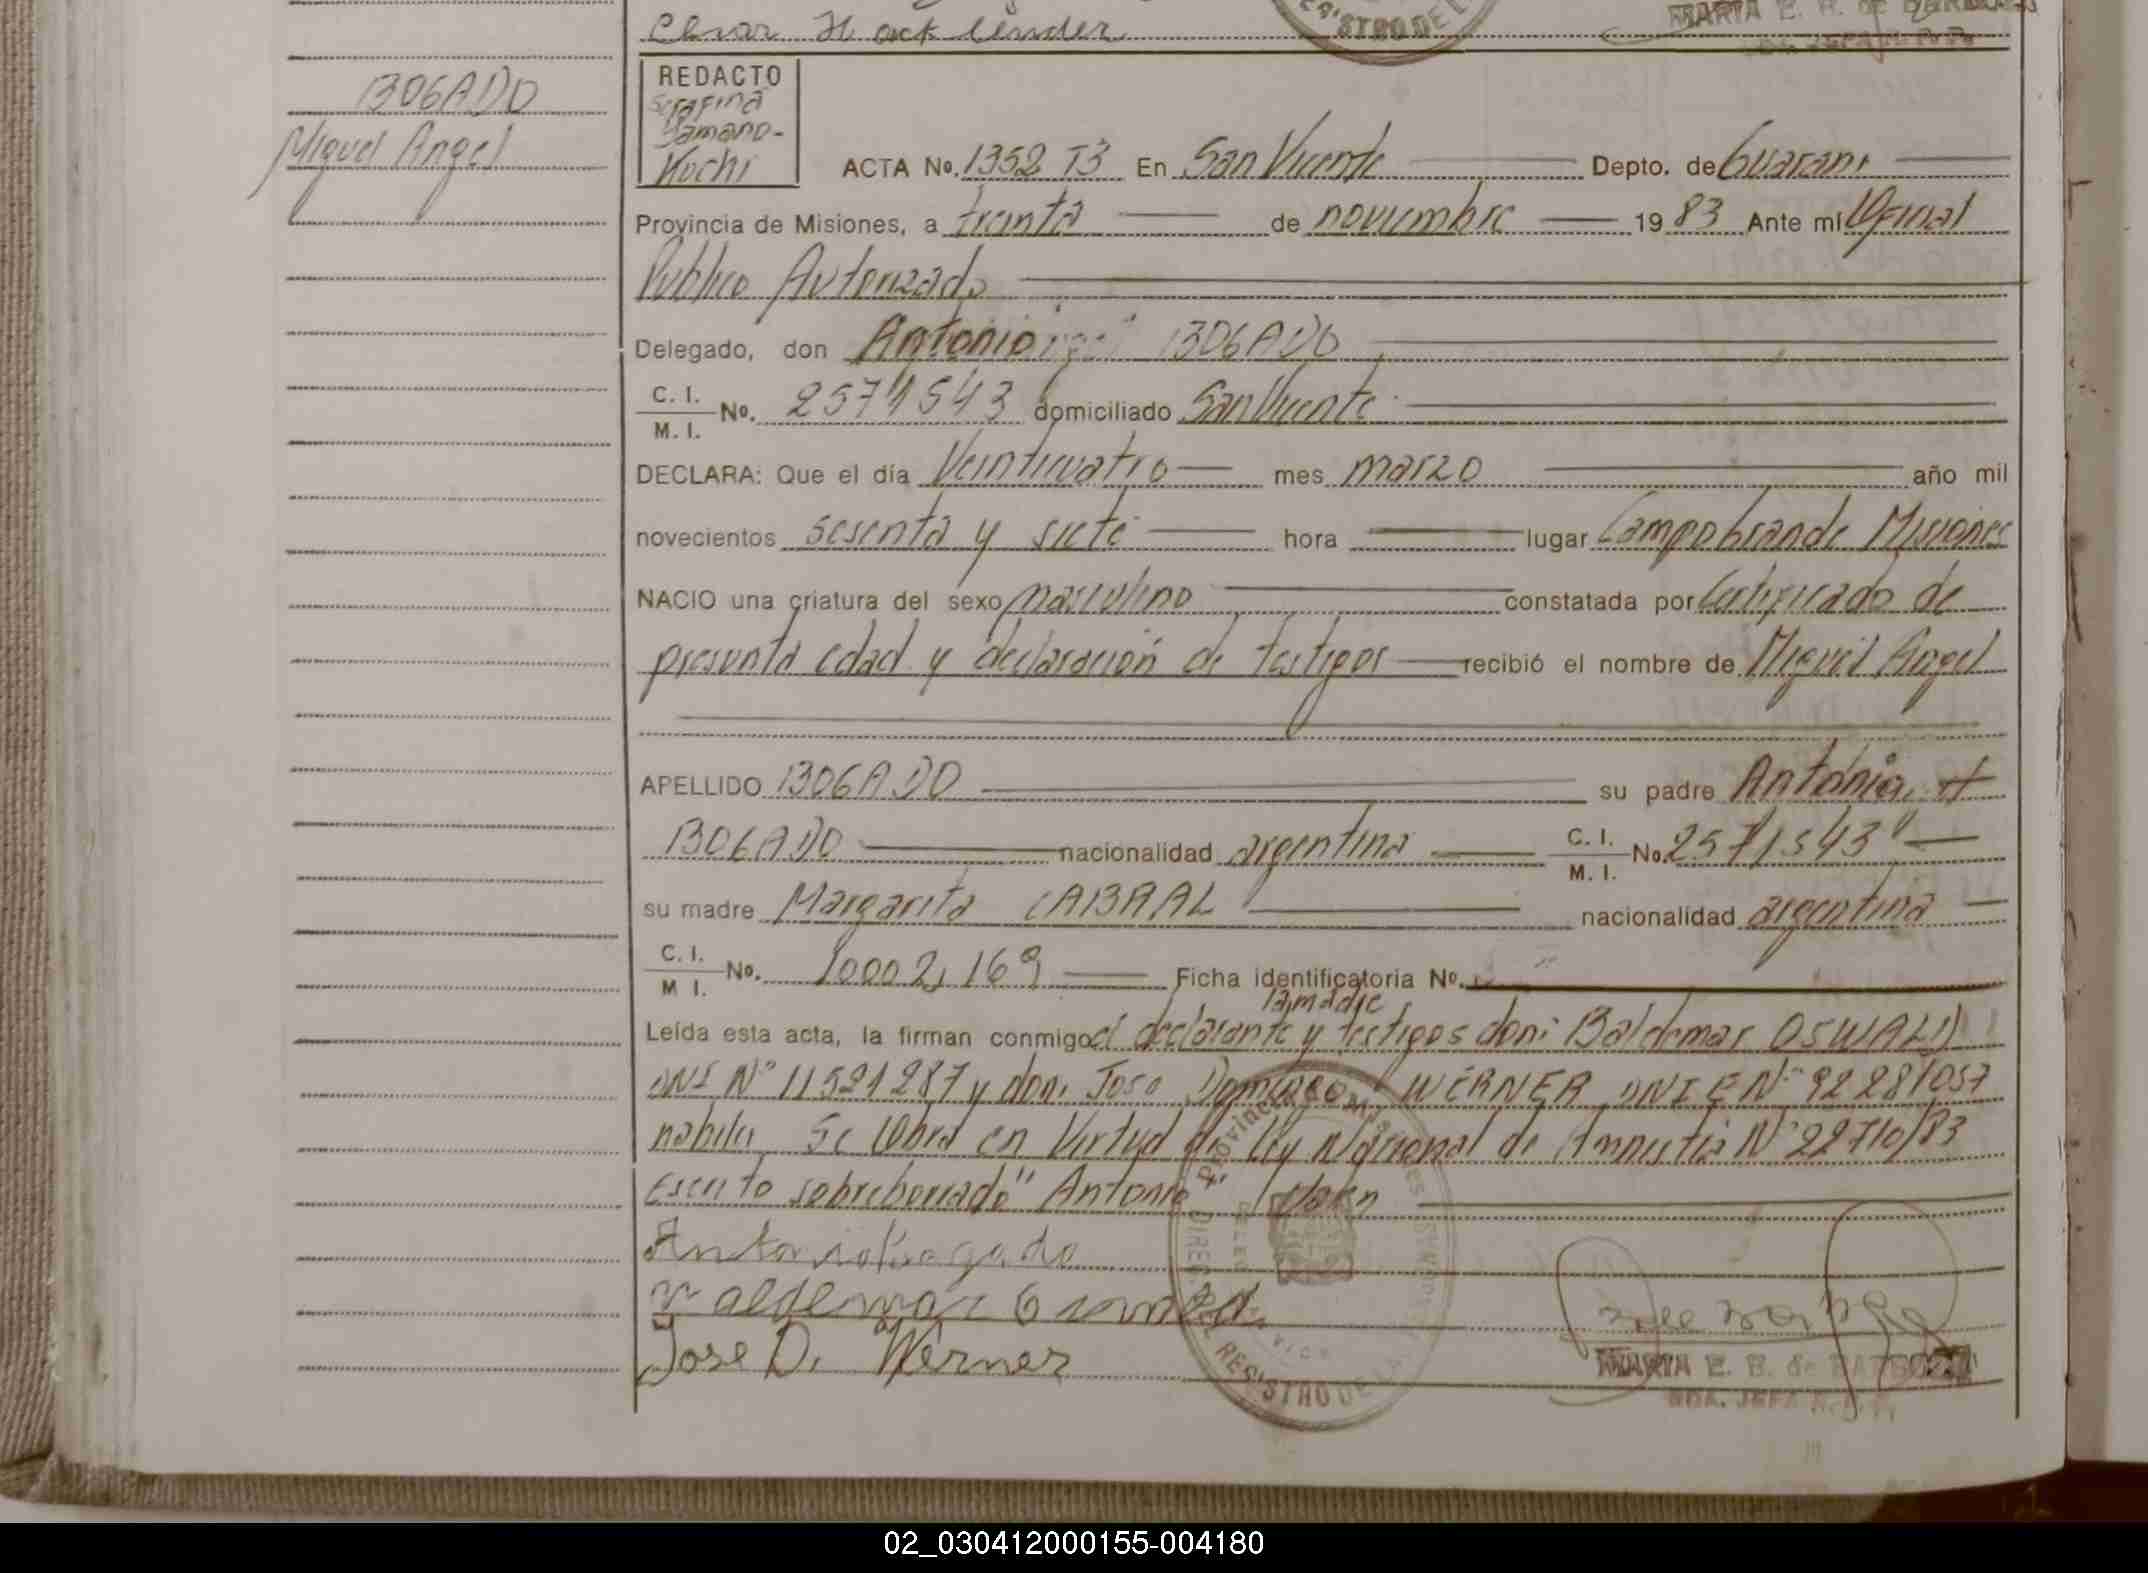 Cesar Hack lender
STRO DE L
MARIA E. B. de
BOGADO
Miguel Angel
REDACTO
Serafina
Yamano-
Kochi
ACTA No. 1352 T3 En San Vicente Depto. de Guarani
Provincia de Misiones, a treinta de noviembre 1983 Ante mí Oficial
Publico Autorizado
Delegado, don Antonio BOGADO
C. I.
M. I. No. 2571543 domiciliado San Vicente
DECLARA: Que el día Veinticuatro mes marzo año mil
novecientos sesenta y siete hora lugar Campo Grande Misiones
NACIO una criatura del sexo masculino constatada por Certificado de
presunta edad y declaración de testigos recibió el nombre de Miguel Angel
APELLIDO BOGADO su padre Antonio
BOGADO nacionalidad argentina C. I. M. I. No. 2571543
su madre Margarita CABRAL nacionalidad argentina
C. I.
M I. No. 10002,169 Ficha identificatoria No.
la madre
Leída esta acta, la firman conmigo el declarante y testigos don: Baldemar OSWALD
DNI Nº 11521287 y don: Jose Domingo WERNER DNI E Nº 92281057
habiles Se Obra en Virtud de Ley Nacional de Amnistia Nº 22710/83
Escrito sobreborrado "Antonio" Valen
Antonio Bogado
José D. Werner
PROVINCIA DE MISIONES
REGISTRO DE L
MARIA E. B. de
02_030412000155-004180